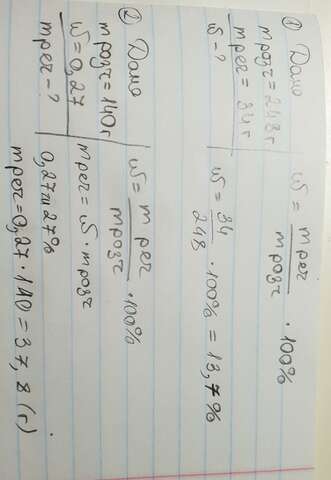 ① Дано
m розч = 248г
m реч = 34г
w - ?
w = m реч / m розч · 100%
w = 34 / 248 · 100% = 13,7%
② Дано
m розч = 140г
w = 0,27
m реч - ?
w = m реч / m розч · 100%
m реч = w · m розч
0,27 27%
m реч = 0,27 · 140 = 37,8 (г)